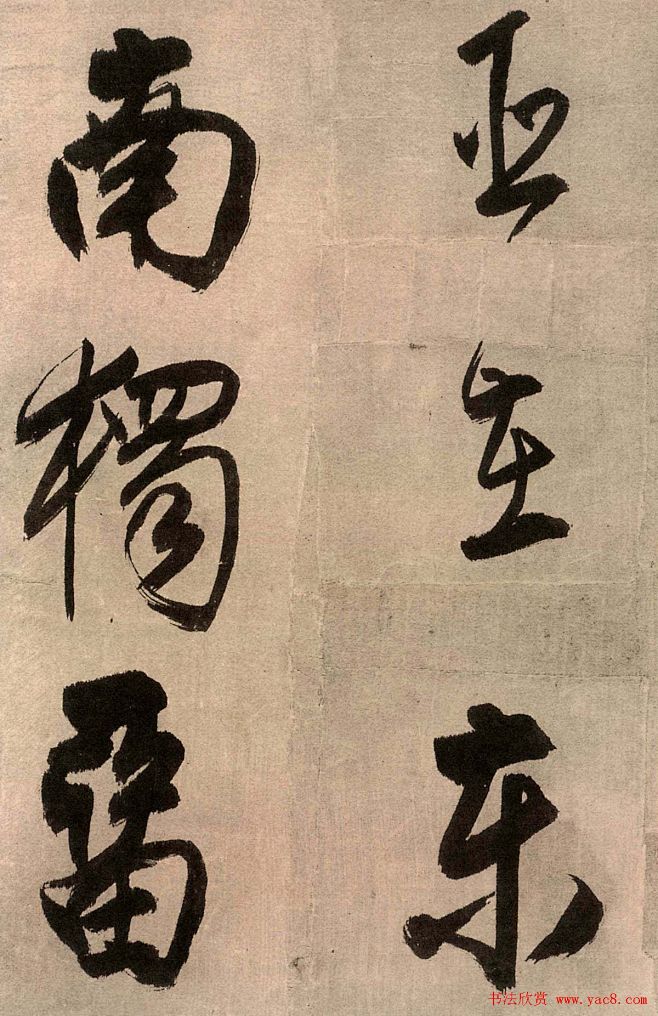 在東
南獨留
书法欣赏 www.yac8.com